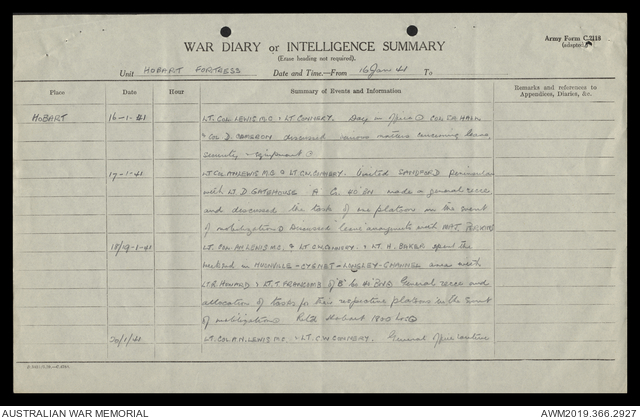 Army Form C.2118
(adapted).
WAR DIARY or INTELLIGENCE SUMMARY
(Erase heading not required).
Unit HOBART FORTRESS Date and Time.—From 16 Jan 41 To
Place Date Hour Summary of Events and Information Remarks and references to Appendices, Diaries, &c.
HOBART 16-1-41 LT. COL. LEWIS M.C. & LT. CONNERY. Day in office COL.
& COL. D. discussed various matters concerning
security - equipment
17-1-41 LT COL. A. H. LEWIS M.C. & LT C.W. CONNERY. Visited SANDFORD peninsular
with LT D. GATEHOUSE A Co. 40 BN made a general recce
and discussed the task of one platoon in the event
of mobilization. Discussed leave arrangements with
18/19-1-41 LT. COL. A.H. LEWIS M.C. & LT C.W. CONNERY. & LT. H. BAKER spent the
weekend in HUONVILLE-CYGNET- -CHANNEL area with
LT R. HOWARD & LT. T. FRANCOMB of "B" Co. 40 BN. General recce and
allocation of tasks for their respective platoons in the event
of mobilization. Ret'd Hobart 1800 hrs
20/1/41 LT. COL. A.H. LEWIS M.C. & LT. C.W. CONNERY. General office routine
AUSTRALIAN WAR MEMORIAL AWM2019.366.2927